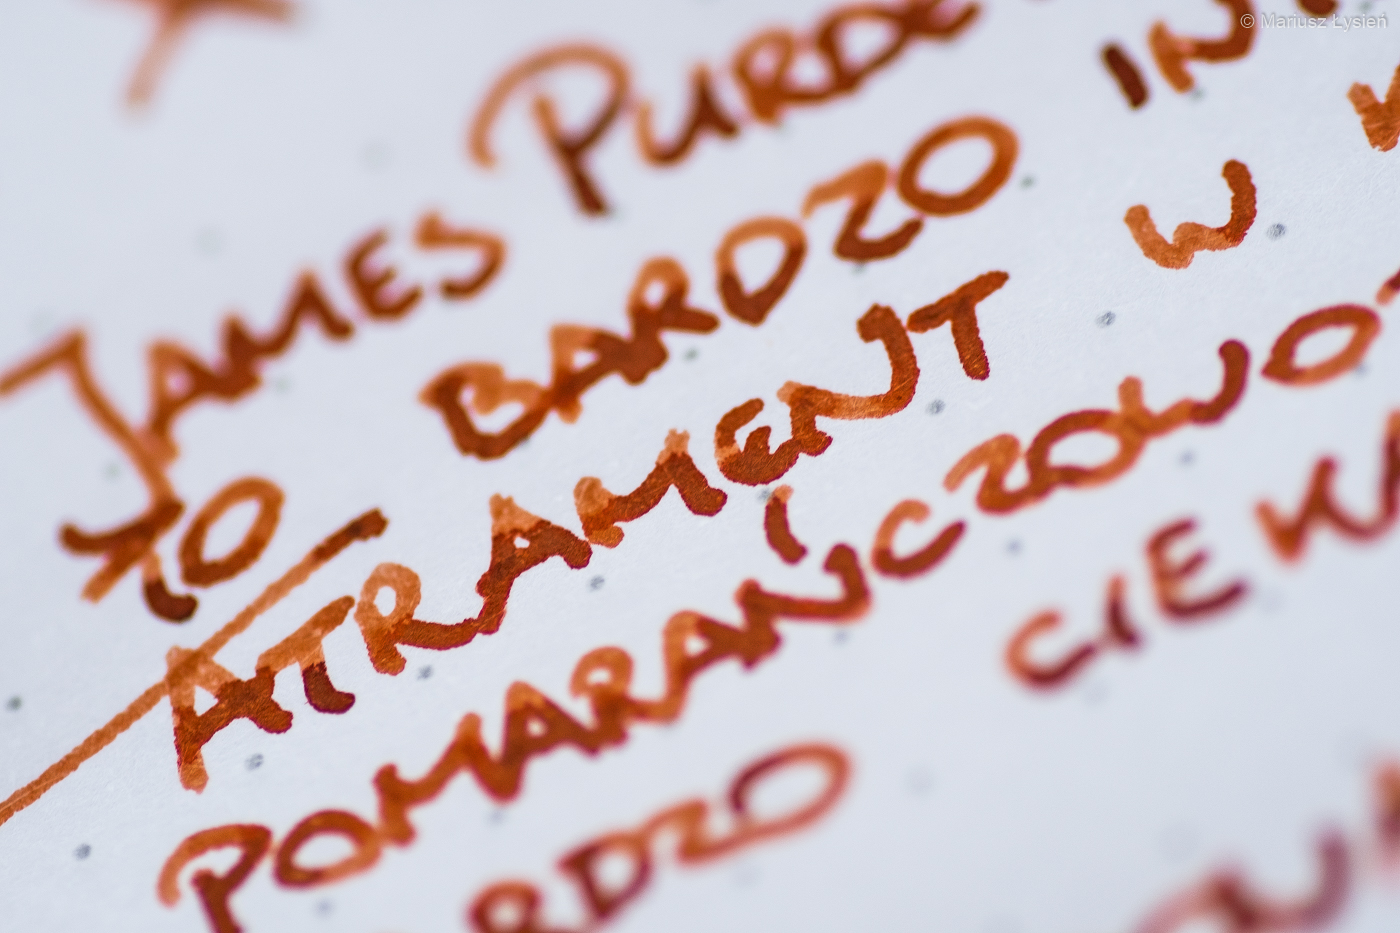 © Mariusz Łysień
JAMES PURDE
TO BARDZO IN
ATRAMENT W
POMARAŃCZOWO
RDZO CIEK